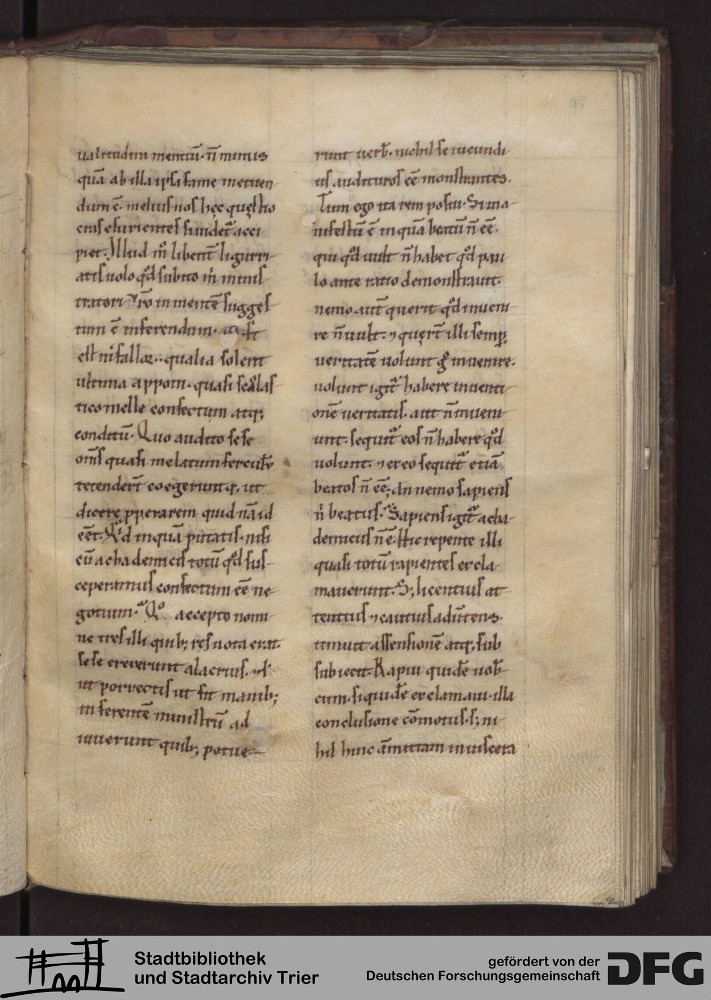 95
ualitudini mentiū. n̄ minus
quā ab illa ipsa fame metuen
dum ē. melius nos hęc quęstio
cius esurientes suadet acci
piet. Illud m̄ libent ligurri
atis uolo qd̄ subito m̄ minis
tratori in mentē sugges
tum ē inferendum. fit
est ni fallor. qualia solent
ultima apponi. quasi scolas
tico melle confectum atq;
conditū. Quo audito sese
om̄s quasi in elatum ferculū
tetendert̄ coegeruntq, ut
dicere pperarem quid nā id
eēt. Qd̄ inquā putatis. nisi
cū achademicis totū qd̄ sus
ceperamus confectum eē ne
gotium. Quo accepto nomi
ne tres illi quib; res nota erat.
sese erexerunt alacrius. &
ut porrectis ut fit manib;
inferentē ministrū ad
iuuerunt quib; potue
runt uerb. nichil se iucundi
us audituros eē monstrantes.
Tum ego ita rem posui. Si ma
nifestū ē inquā beatū n̄ eē.
qui qd̄ uult n̄ habet qd̄ pau
lo ante ratio demonstrauit.
nemo aut̄ querit qd̄ inueni
re n̄ uult. & quert̄ illi semp
ueritatē uolunt g inuenire.
uolunt igit̄ habere inuenti
onē ueritatis. aut n̄ inueni
unt. sequit̄ eos n̄ habere qd̄
uolunt. & ex eo sequit̄ etiā
beatos n̄ eē; an nemo sapiens
n̄ beatus. Sapiens igit̄ acha
demicus n̄ ē. Hic repente illi
quasi totū rapientes excla
mauerunt. S; licentius at
tentius & cautius aduertens.
timuit assensionē atq; sub
subiecit. Rapui quidē uob
cum. siquidē exclamaui illa
conclusione cōmotus. s; ni
hil hinc āmittam in uiscera
Stadtbibliothek
und Stadtarchiv Trier
gefördert von der
Deutschen Forschungsgemeinschaft
DFG